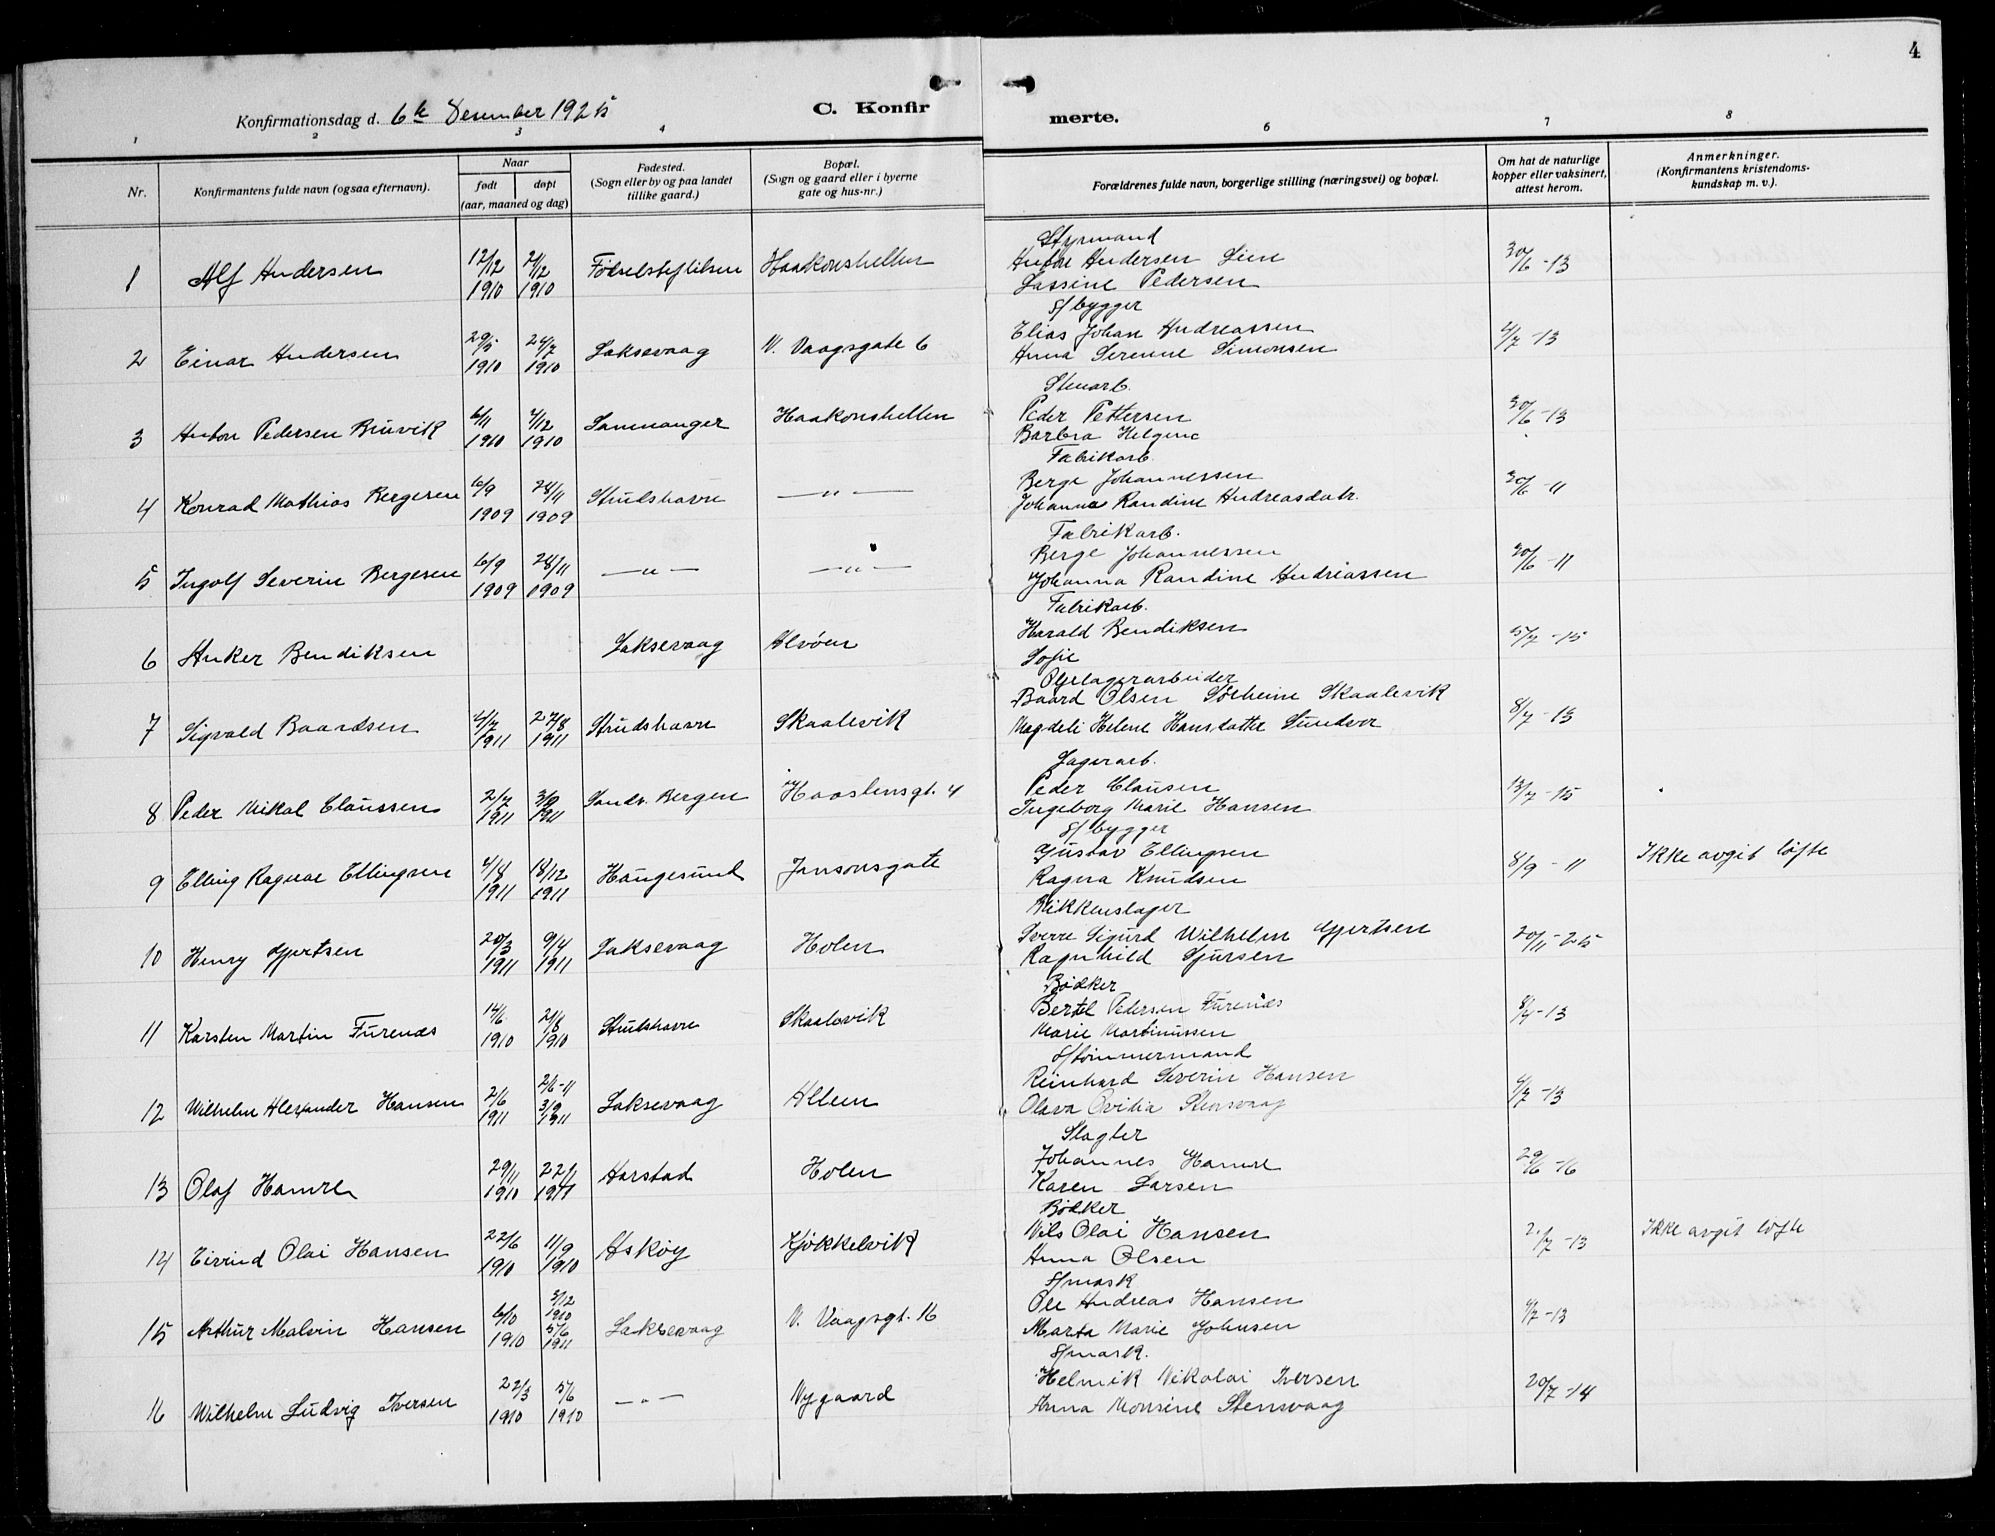 4
Konfirmationsdag d. 6te Desember 1925 C. Konfir merte.
1 2 3 4 6 7 8
Nr. Konfirmantens fulde navn (ogsaa efternavn). Naar født døpt (aar, maaned og dag) Fødested. (Sogn eller by og paa landet tillike gaard.) Bopæl. (Sogn og gaard eller i byerne gate og hus-nr.) Forældrenes fulde navn, borgerlige stilling (næringsvei) og bopæl. Om hat de naturlige kopper eller vaksinert, attest herom. Anmerkninger. (Konfirmantens kristendomskundskap m. v.).
Styrmand
1 Alf Andersen 12/12 1910 21/12 1910 Fødselsstiftelsen Haakonshellen Andersen Lien 30/6-13
Lassine Pedersen
S/bygger
2 Einar Andersen 29/5 1910 24/7 1910 Laksevaag N. Vaagsgate 6 Elias Johan Andreassen 4/7-13
Anna Serenne Simonsen
Stenarb.
3 Anton Pedersen Bruvik 6/11 1910 4/12 1910 Samnanger Haakonshellen Peder Pettersen 30/6-13
Barbra Helgene
Fabrikarb.
4 Konrad Mathias Bergesen 6/9 1909 28/11 1909 Strudshavn —"— Berge Johannessen 30/6-11
Johanna Randine Andreasdatr.
Fabrikarb.
5 Ingolf Severin Bergesen 6/9 1909 28/11 1909 —"— —"— Berge Johannessen 30/6-11
Johanna Randine Andreassen
Fabrikarb.
6 Anker Bendiksen Laksevaag Alvøen Harald Bendiksen 5/7-15
Sofie
Oljelagerarbeider
7 Sigvald Baardsen 4/7 1911 27/8 1911 Strudshavn Skaalevik Baard Olsen Solheim Skaalevik 8/7-13
Magdeli Helene Hansdatter Sundvor
Lagerarb.
8 Peder Mikal Claussen 2/7 1911 3/9 1911 Sandv. Bergen Haastensgt. 4 Peder Clausen 13/7-15
Ingeborg Marie Hansen
S/bygger
9 Elling Ragnar Ellingsen 4/8 1911 18/12 1911 Haugesund Jansonsgate Gustav Ellingsen 8/9-11 Ikke avgit løfte
Ragna Knudsen
Blikkenslager
10 Henry Gjertsen 20/3 1911 9/4 1911 Laksevaag Holen Sverre Sigurd Wilhelm Gjertsen 20/11-25
Ragnhild Sjursen
Bødker
11 Karsten Martin Furenæs 14/6 1910 21/8 1910 Strutshavn Skaalevik Bertel Pedersen Furenæs 8/7-13
Marie Martinussen
S/tømmermand
12 Wilhelm Alexander Hansen 2/6 1911 2/6-11 3/9 1911 Laksevaag Alleen Reinhard Severin Hansen 4/7-13
Olava Ovidia Stensvaag
Slagter
13 Olaf Hamre 29/11 1910 22/1 1911 Harstad Holen Johannes Hamre 29/6-16
Karen Larsen
Bødker
14 Eivind Olai Hansen 22/6 1910 11/9 1910 Askøy Kjøkkelvik Nils Olai Hansen 2/7-13 Ikke avgit løfte
Anna Olsen
S/mask
15 Arthur Malvin Hansen 6/10 1910 3/12 1910 5/6 1911 Laksevaag N. Vaagsgt. 16 Ole Andreas Hansen 4/7-13
Marta Marie Johnsen
S/mask.
16 Wilhelm Ludvig Iversen 22/3 1910 5/6 1910 —"— Nygaard Helmik Nikolai Iversen 20/7-14
Anna Monsine Stensvaag